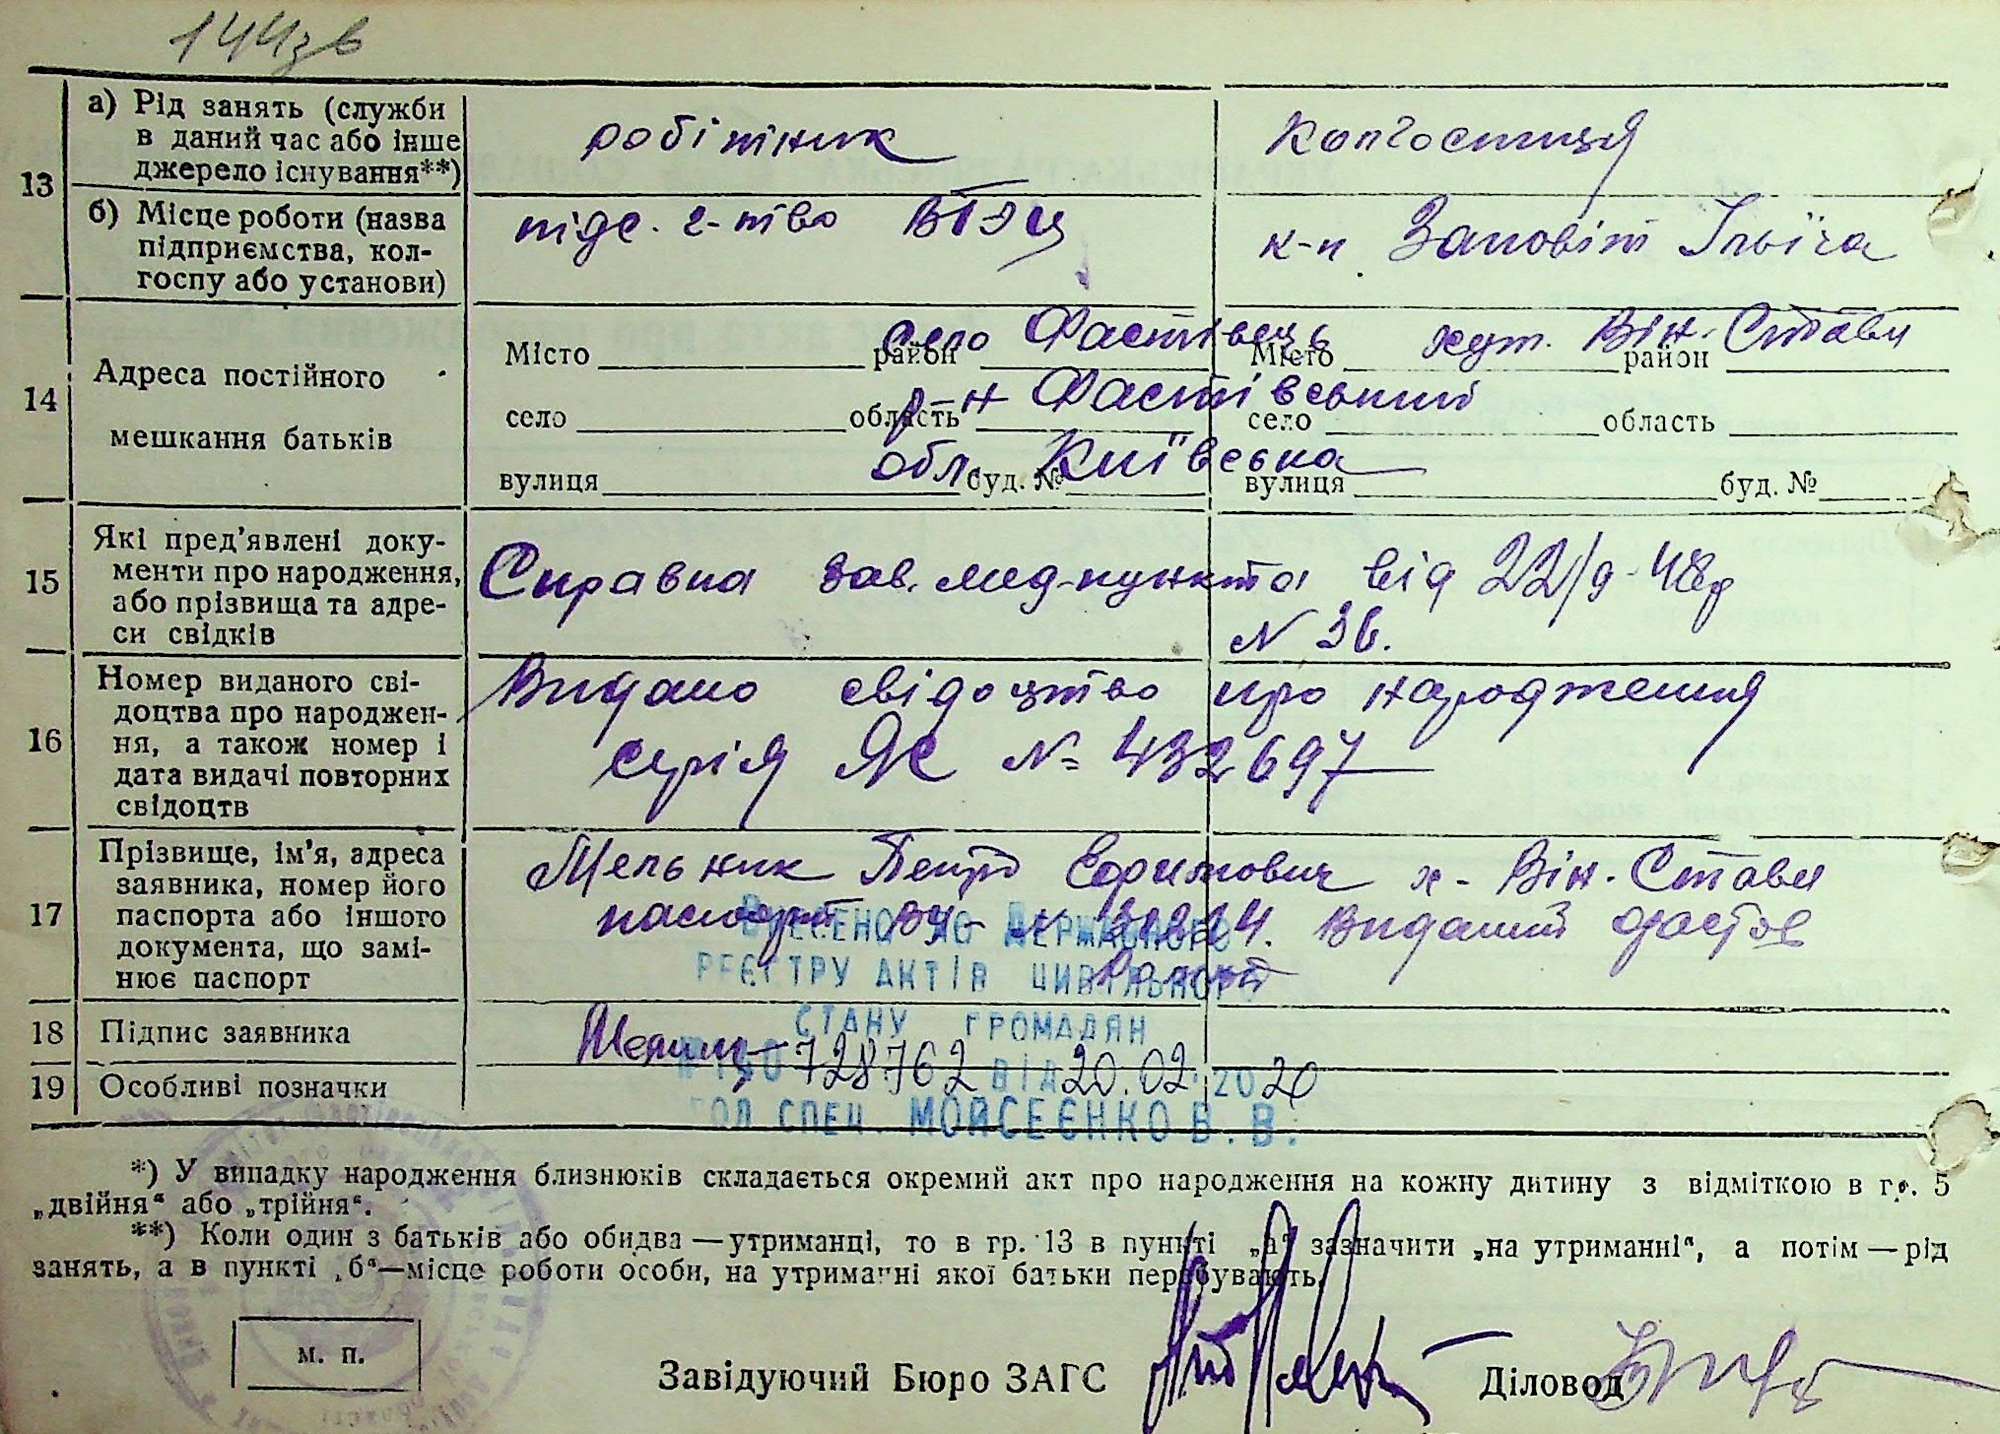 144зв
13
а) Рід занять (служби
в даний час або інше
джерело існування**)
робітник
колгоспниця
б) Місце роботи (назва
підприємства, кол-
госпу або установи)
підс. г-тво
к-п Заповіт Ілліча
14
Адреса постійного
мешкання батьків
Місто район
село область
вулиця буд. №
село Фастівець
р-н Фастівський
обл. Київська
Місто район
село область
вулиця буд. №
хут. Він. Стави
15
Які пред'явлені доку-
менти про народження,
або прізвища та адре-
си свідків
Справка зав. мед-пункта від 22/9-48р
N 36.
16
Номер виданого сві-
доцтва про народжен-
ня, а також номер і
дата видачі повторних
свідоцтв
Видано свідоцтво про народження
серія ЯС № 432697
17
Прізвище, ім'я, адреса
заявника, номер його
паспорта або іншого
документа, що замі-
нює паспорт
Мельник Петро х- Він. Стави
паспорт Виданий Фастов
ВНЕСЕНО ДО ДЕРЖАВНОГО
РЕЄСТРУ АКТІВ ЦИВІЛЬНОГО
СТАНУ ГРОМАДЯН
18 Підпис заявника
728762 ВІД 20.02.2020
19 Особливі позначки
ГОЛ СПЕЦ. МОЙСЕЄНКО В. В.
*) У випадку народження близнюків складається окремий акт про народження на кожну дитину з відміткою в гр. 5
„двійня“ або „трійня“.
**) Коли один з батьків або обидва — утриманці, то в гр. 13 в пункті „а“ зазначити „на утриманні“, а потім — рід
занять, а в пункті „б“—місце роботи особи, на утриманні якої батьки перебувають.
м. п.
Завідуючий Бюро ЗАГС
Діловод